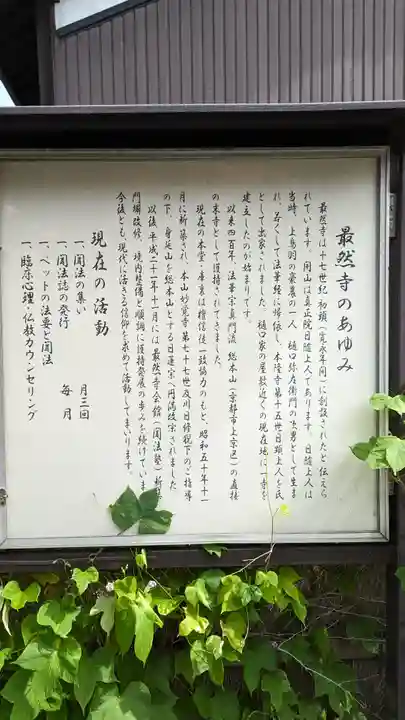 最然寺のあゆみ
最然寺は十七世紀初頭(寛永年間)に創設されたと伝えら
れています。開山は真正院日随上人であります。日随上人は
当時、上鳥羽の豪農の一人 樋口弥左衛門の次男として生ま
れ、若くして法華経に帰依し、本隆寺第十五世日頭上人を氏
として出家されました。樋口家の屋敷近くの現在地に一寺を
建立したのが始まりです。
以来四百年、法華宗真門流 総本山(京都市上京区)の直接
の末寺として護持されてきました。
現在の本堂・庫裏は檀信徒一致協力のもと、昭和五十年十一
月に新築され、本山妙覚寺第七十七世及川日修猊下のご指導
の下、身延山を総本山とする日蓮宗へ円満改宗されました
以後平成二十年十一月には最然寺会館(聞法塾)新
門塀改修、境内整備と順調に護持発展の歩みを続けていま
今後とも、現代に活きる信仰を求めて活動してまいります。
現在の活動
一、聞法の集い 月三回
一、聞法誌の発行 毎月
一、ペットの法要と聞法
一、臨床心理・仏教カウンセリング